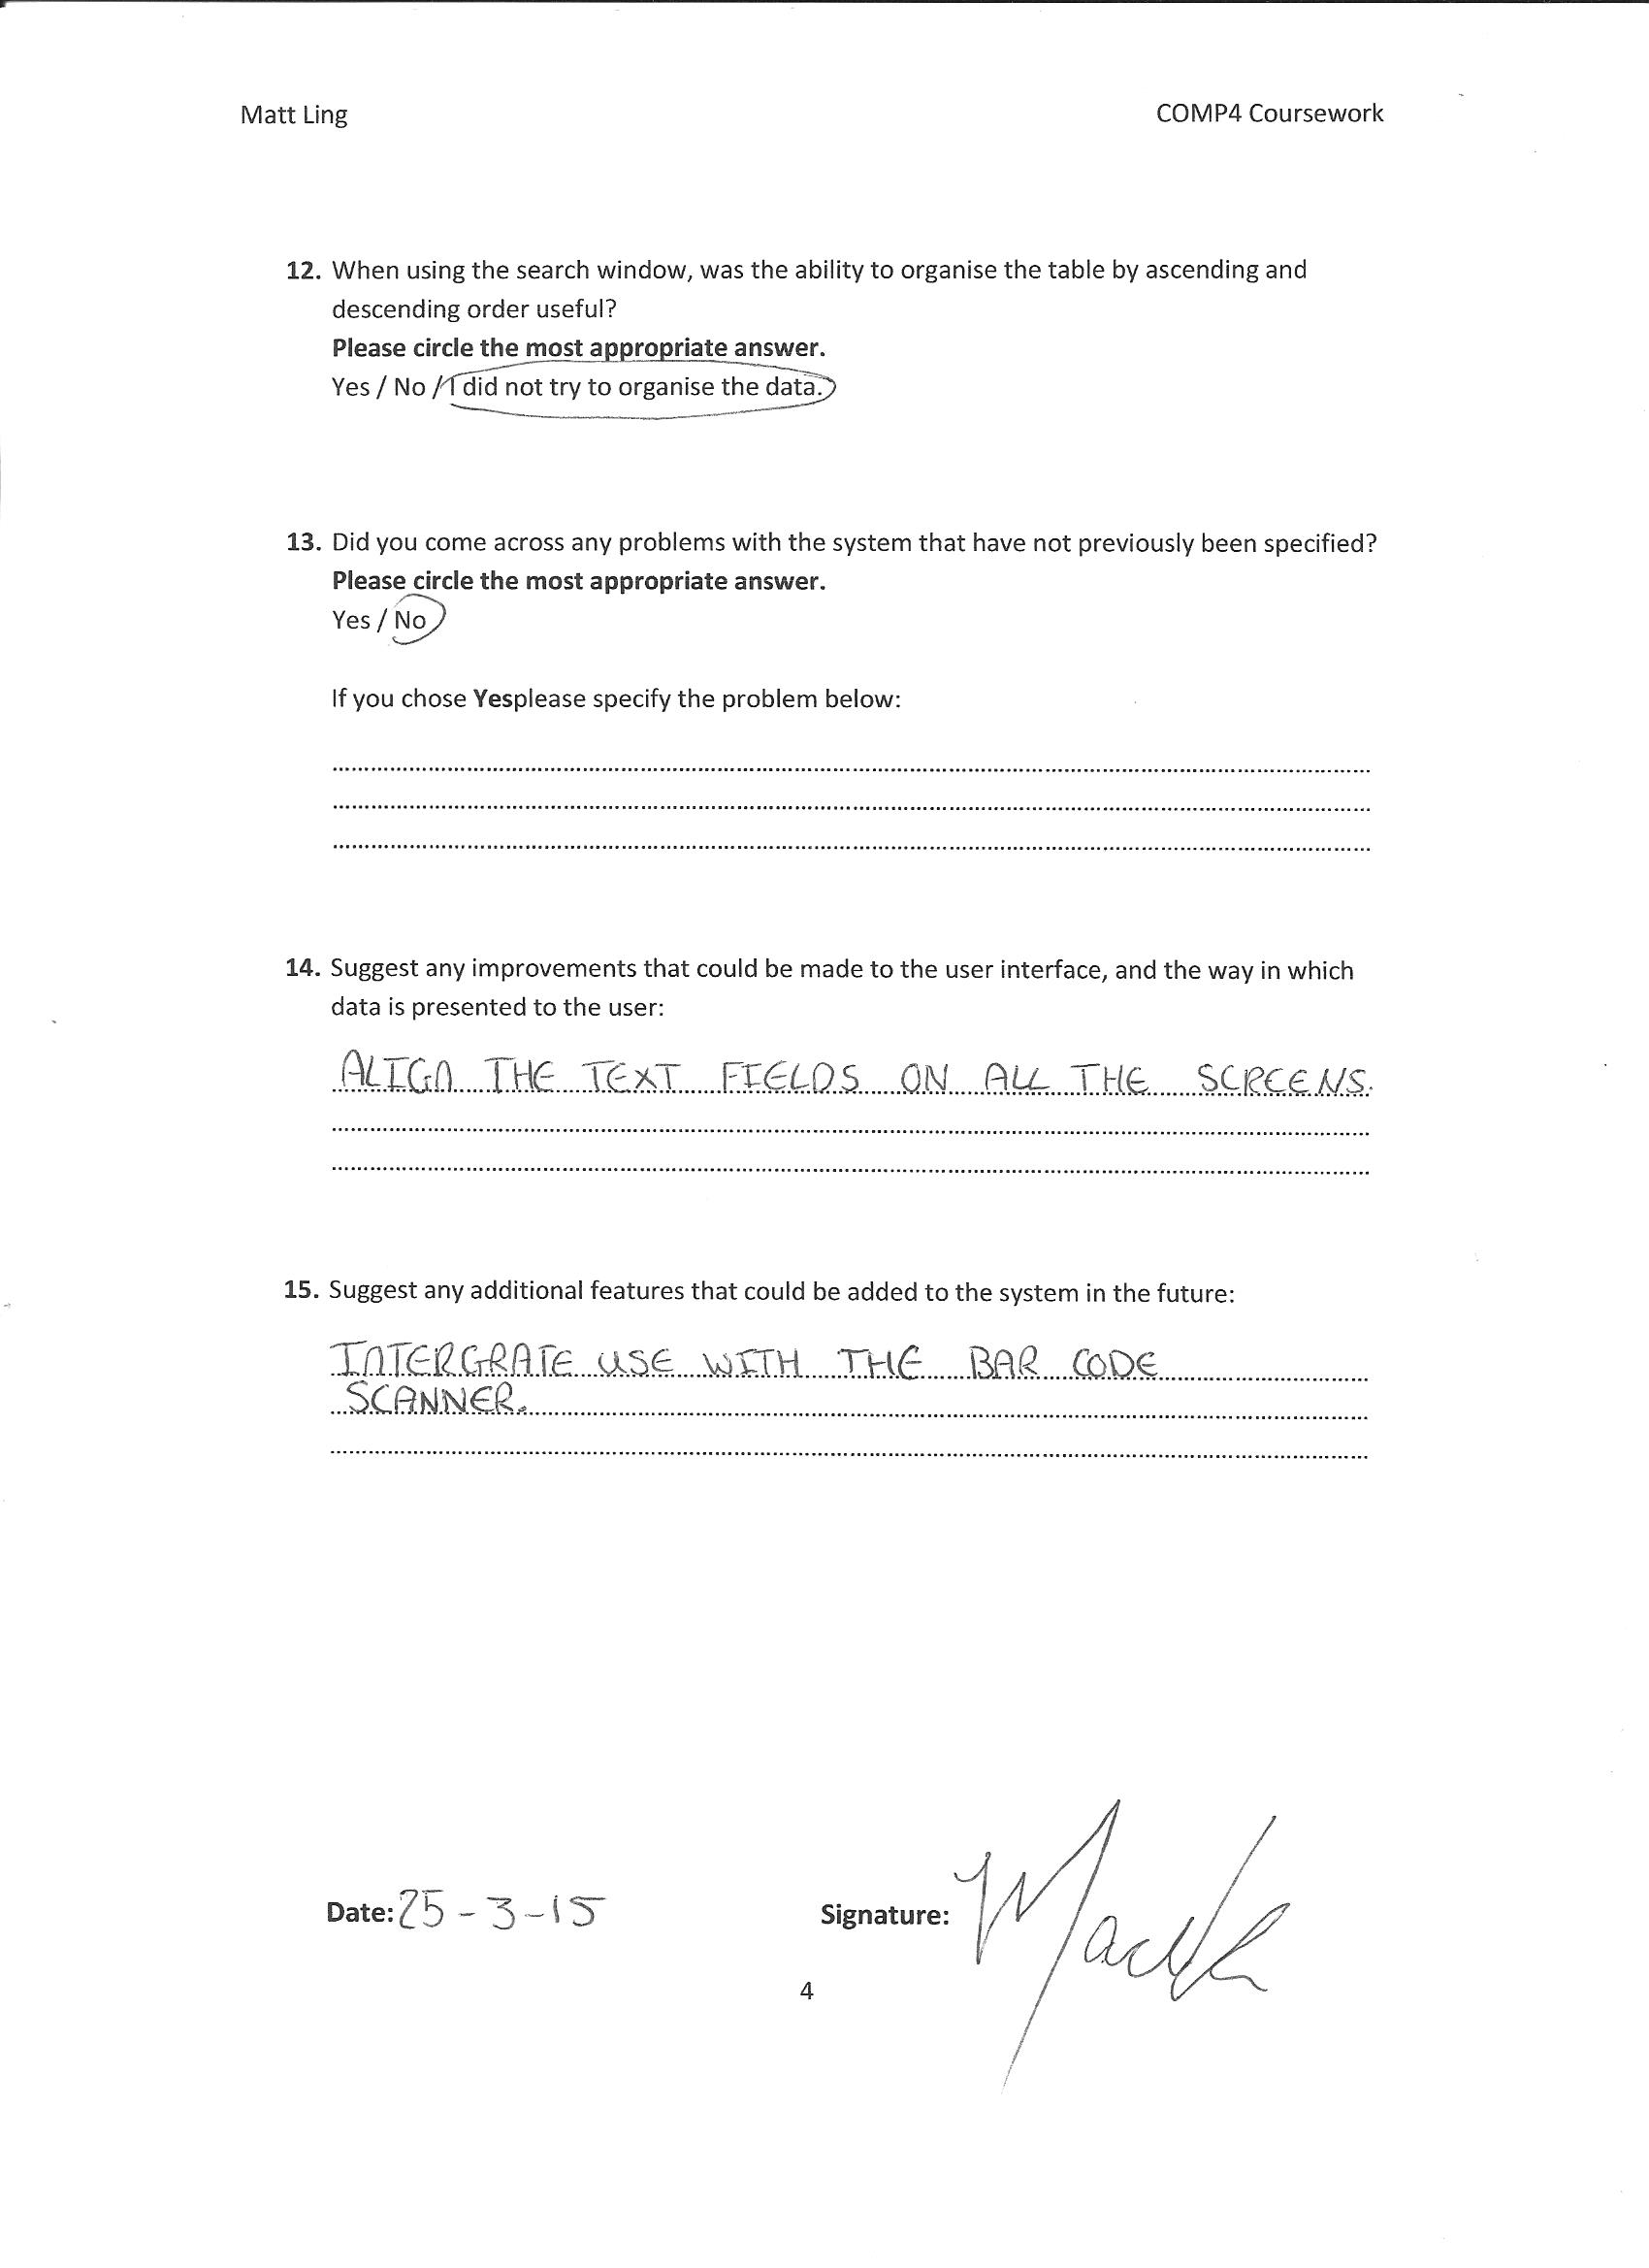 Matt Ling
COMP4 Coursework
12. When using the search window, was the ability to organise the table by ascending and
descending order useful?
Please circle the most appropriate answer.
Yes / No / I did not try to organise the data.
13. Did you come across any problems with the system that have not previously been specified?
Please circle the most appropriate answer.
Yes / No
If you chose Yesplease specify the problem below:
14. Suggest any improvements that could be made to the user interface, and the way in which
data is presented to the user:
ALIGN THE TEXT FIELDS ON ALL THE SCREENS.
15. Suggest any additional features that could be added to the system in the future:
INTERGRATE USE WITH THE BAR CODE
SCANNER.
Date: 25-3-15
Signature:
4